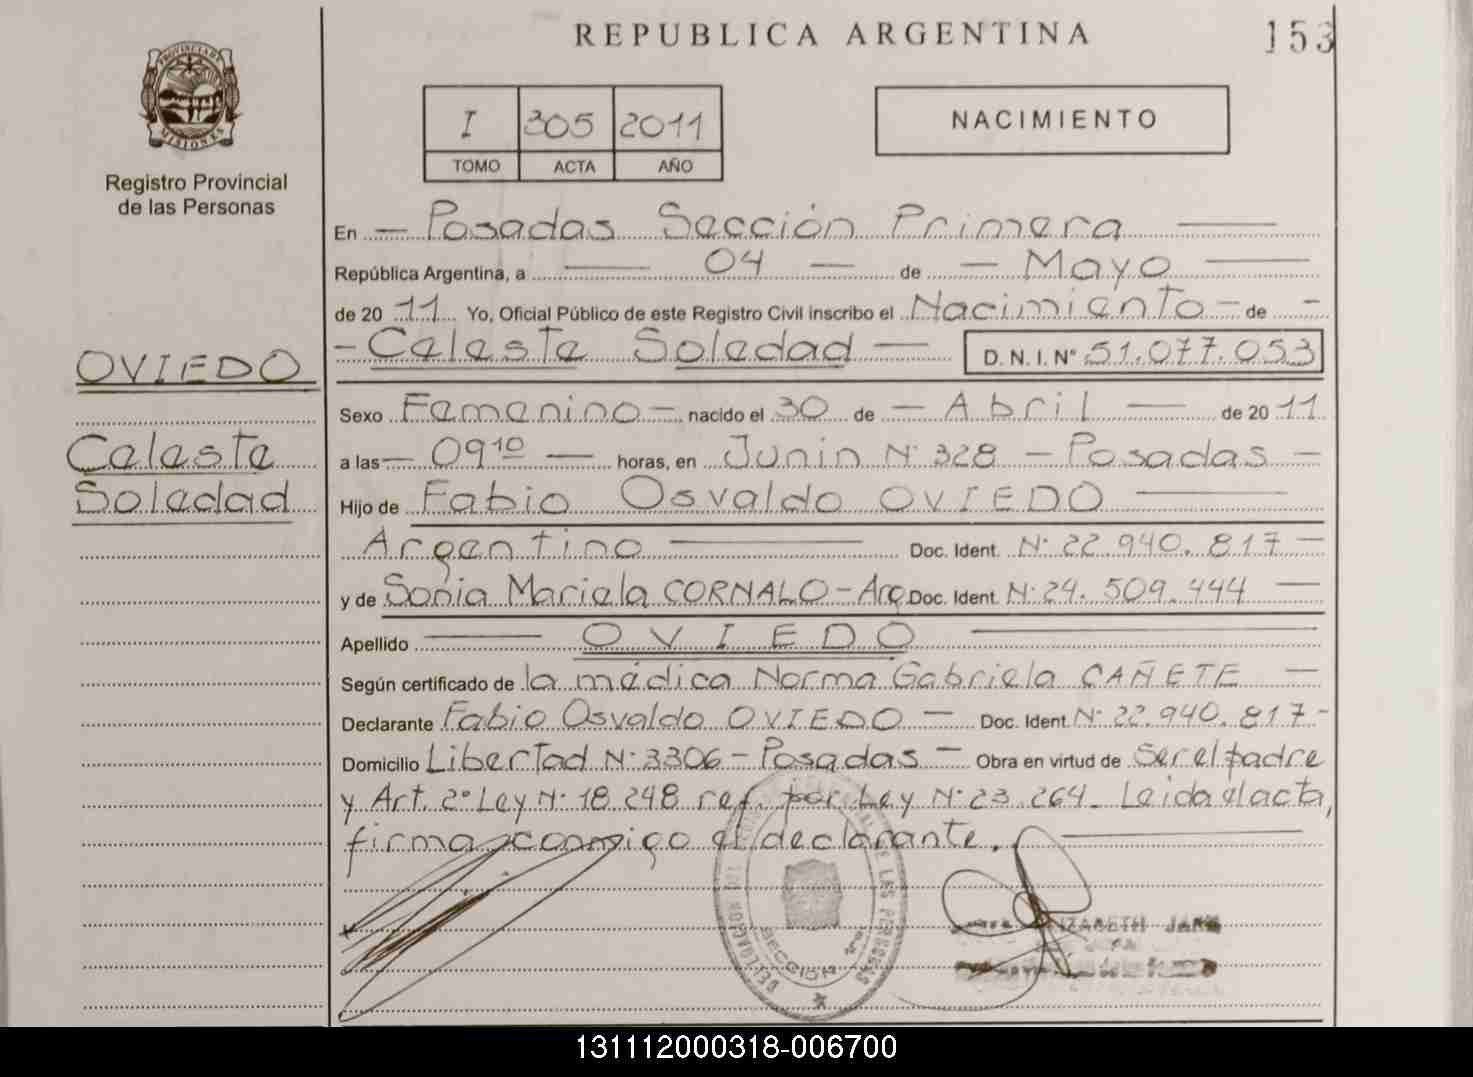 REPUBLICA ARGENTINA
153
PROVINCIA DE MISIONES
Registro Provincial
de las Personas
I 305 2011
TOMO ACTA AÑO
NACIMIENTO
En - Posadas Sección Primera
República Argentina, a 04 - de - Mayo
de 20 11 Yo, Oficial Público de este Registro Civil inscribo el Nacimiento - de -
- Celeste Soledad - D. N. I. N° 51.077.053
OVIEDO
Celeste
Soledad
Sexo Femenino - nacido el 30 de - Abril - de 20 11
a las - 09 10 - horas, en Junin N° 328 - Posadas -
Hijo de Fabio Osvaldo OVIEDO
Argentino Doc. Ident. N° 22.940.817 -
y de Sonia Mariela CORNALO - Arg Doc. Ident. N° 24.509.444
Apellido OVIEDO
Según certificado de la médica Norma Gabriela CAÑETE -
Declarante Fabio Osvaldo OVIEDO - Doc. Ident. N° 22.940.817 -
Domicilio Libertad N° 3306 - Posadas - Obra en virtud de Ser el padre
y Art. 2° Ley N° 18.248 ref. por Ley N° 23.264. Leida el acta,
firma conmigo el declarante.
DE LAS PERSONAS
SECCION 1ª
131112000318-006700